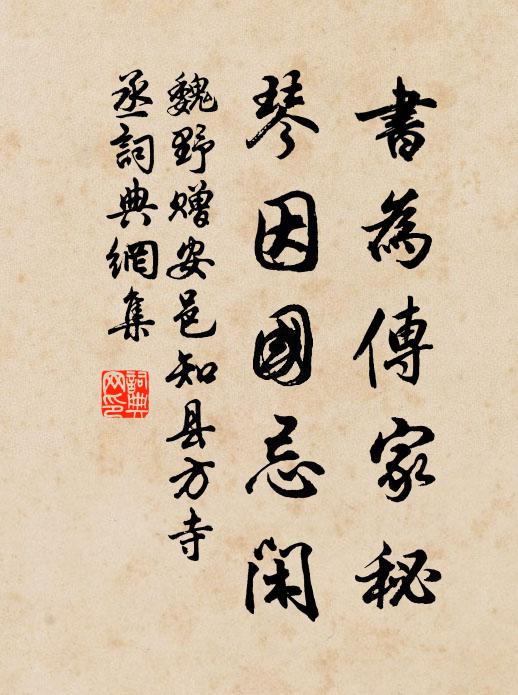 書為傳家秘
琴因國忌閑
魏野贈安邑知县方寺
丞詞典網集
詞典网印